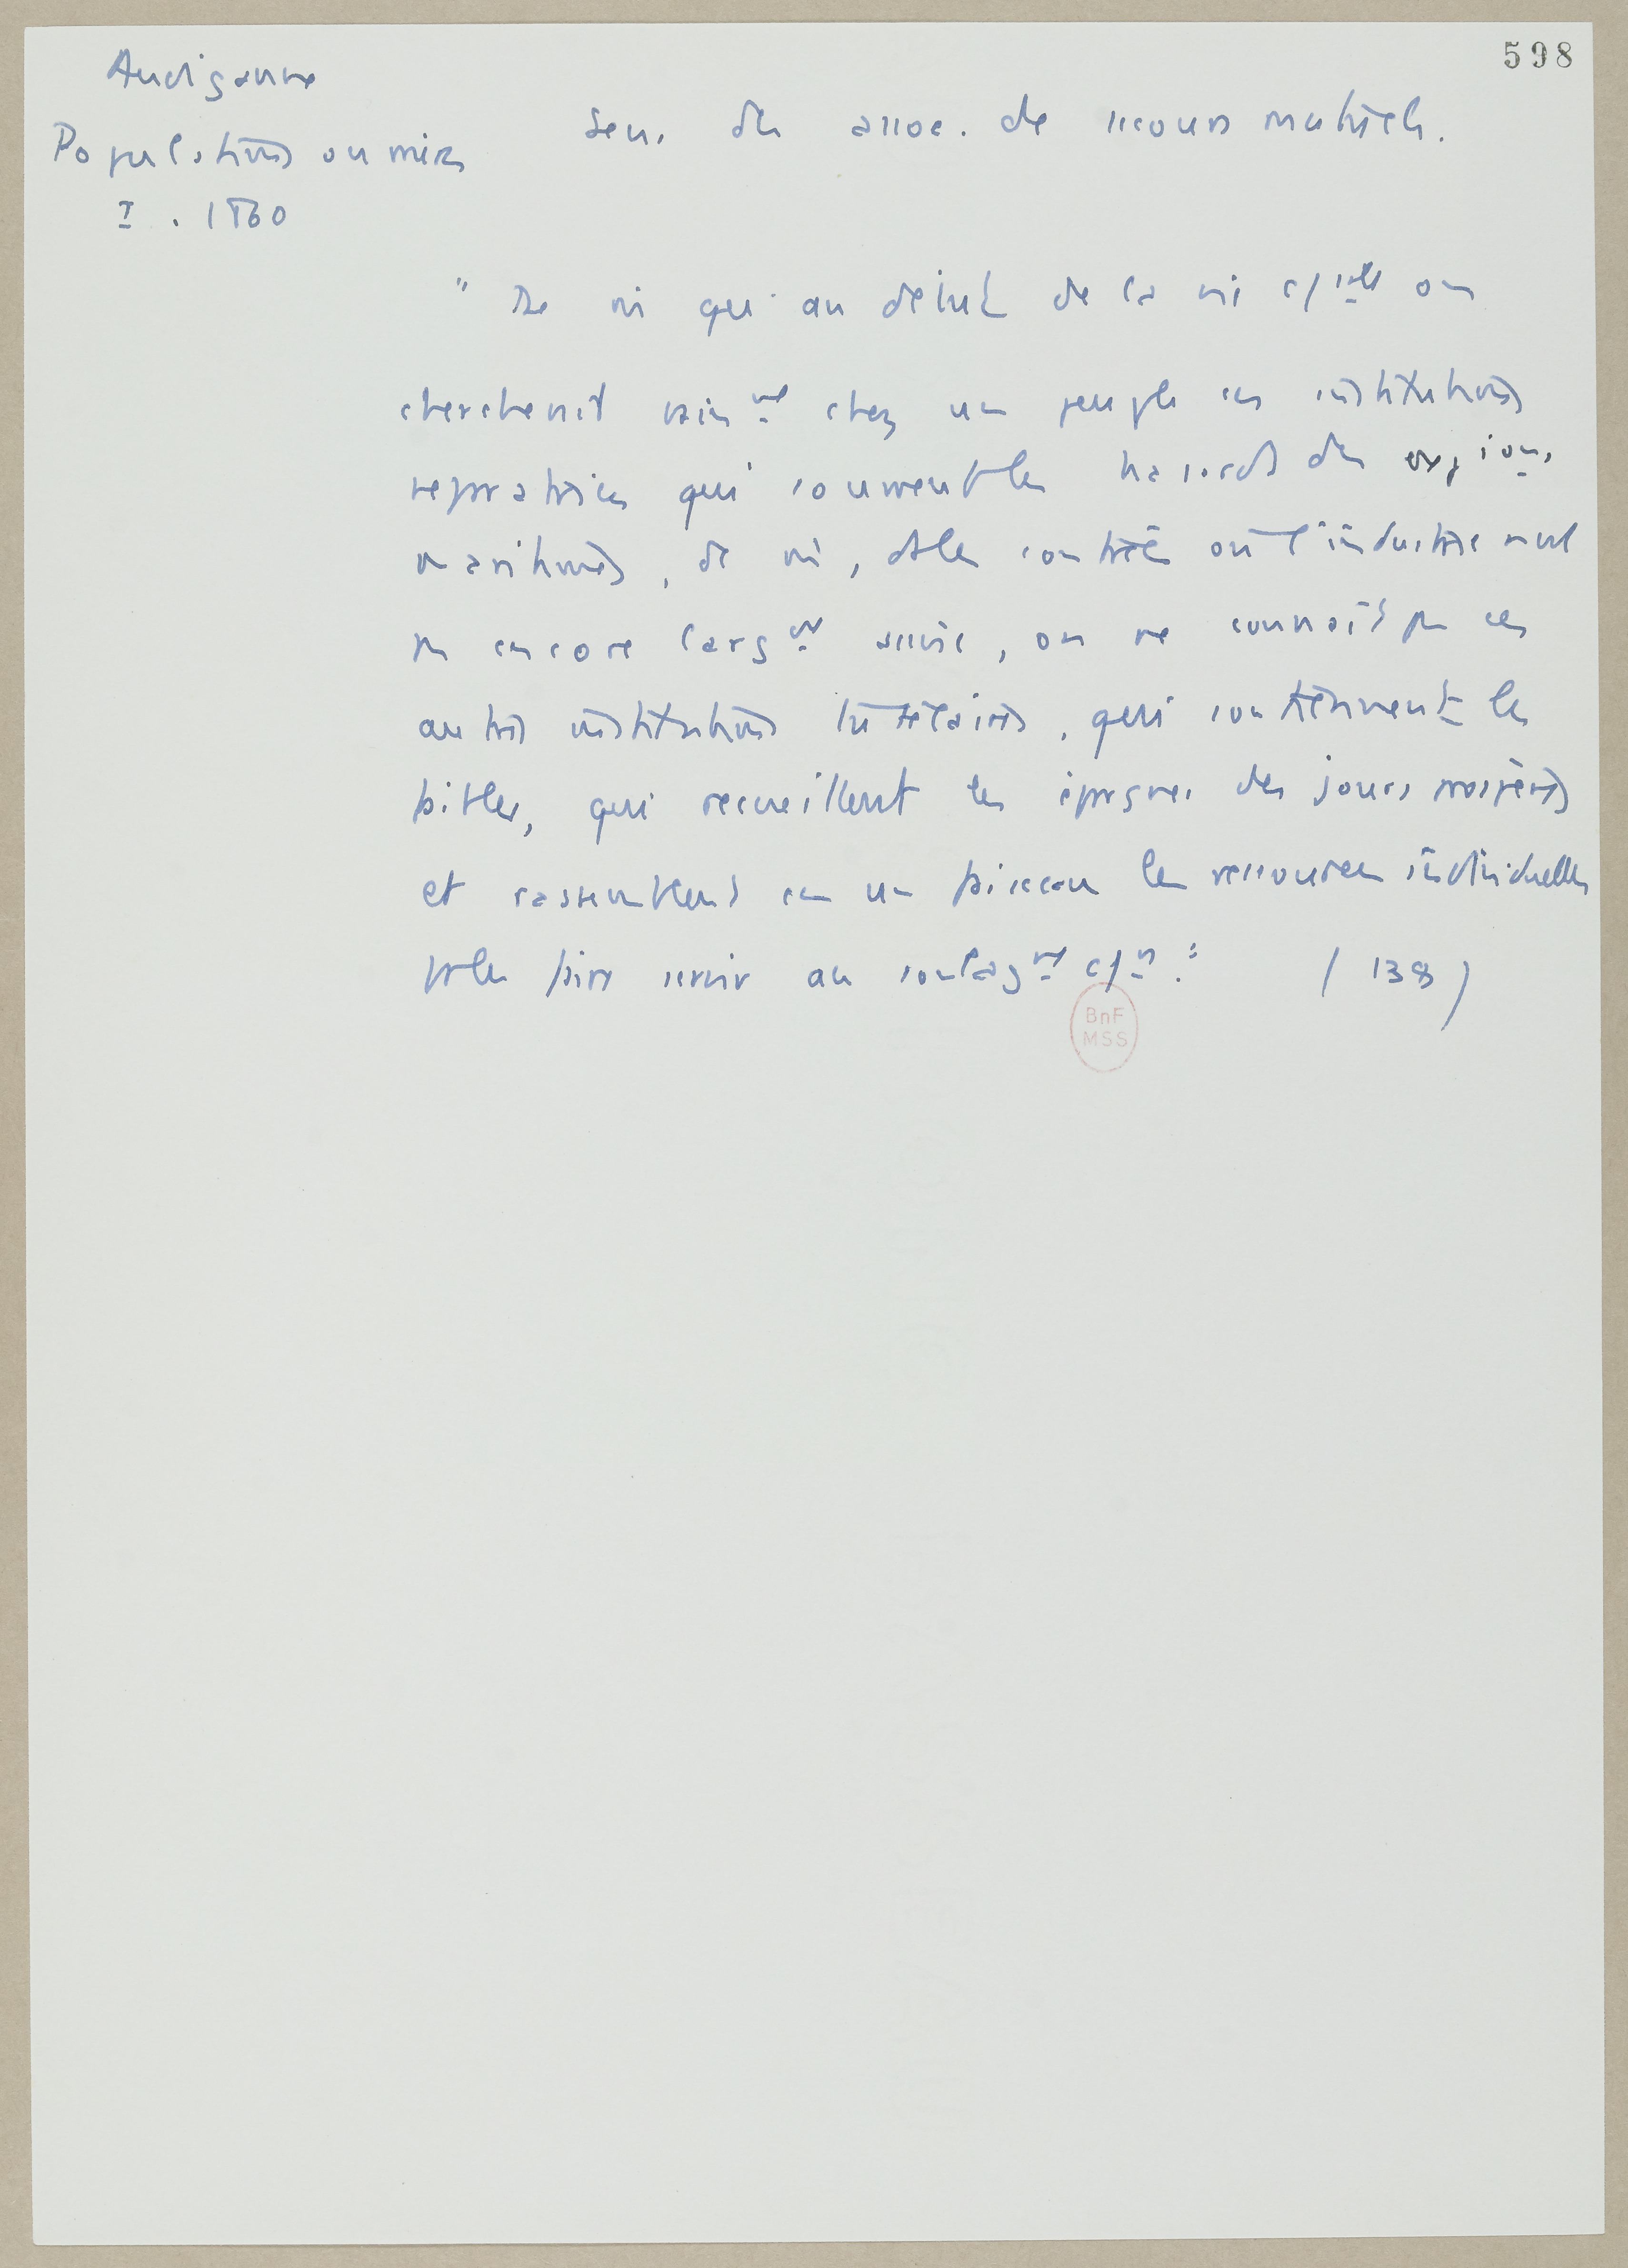 598
Audiganne
Populations ouvrières
I. 1860
Sens des assoc. de secours mutuels.
" De m̂ qu'au début de la vie c/ialle on
chercherait vainmt chez un peuple ces institutions
réparatrices qui couvrent les hasards des exp ions
maritimes, de m̂, ds les contrées où l'industrie n'est
pas encore largmt assise, on ne connaît pas ces
autres institutions tutélaires, qui soutiennent les
faibles, qui recueillent les épargnes des jours prospères
et rassemblent en un faisceau les ressources individuelles
pr les faire servir au soulagmt c/n." (138)
BnF
MSS